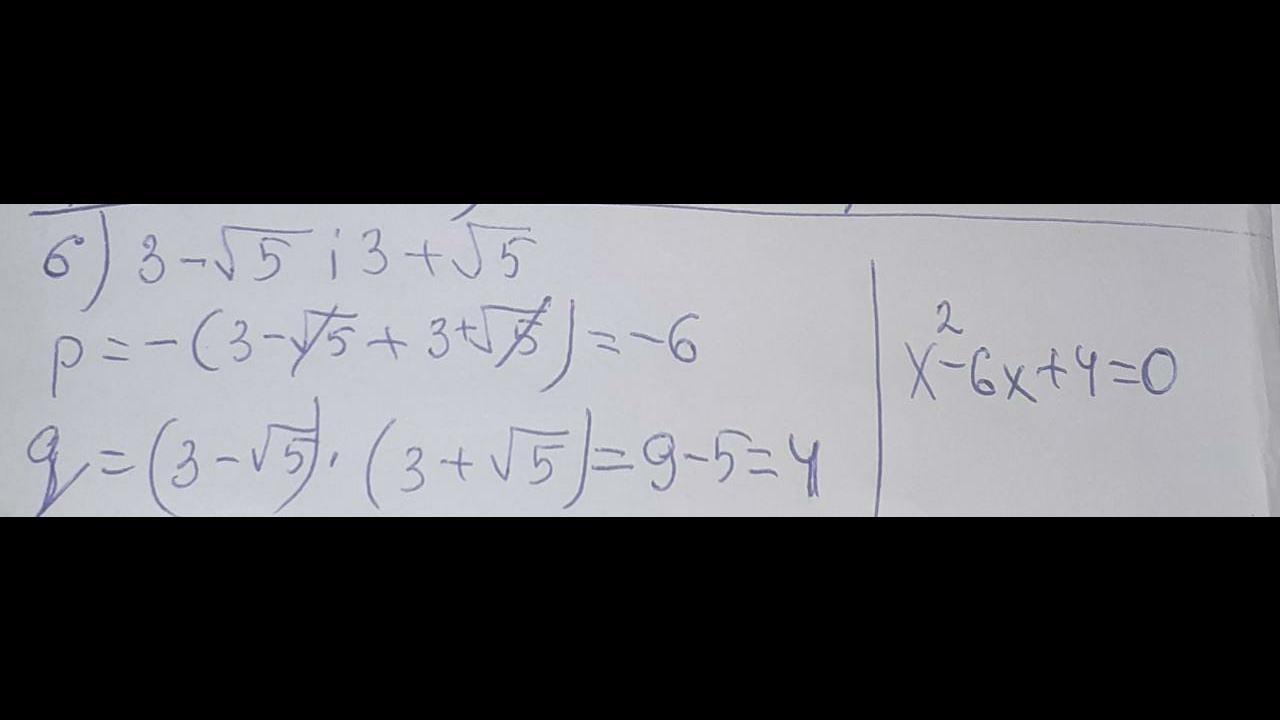 6) 3-√5 i 3+√5
p=-(3-√5+3+√5)=-6
q=(3-√5)·(3+√5)=9-5=4
x²-6x+4=0